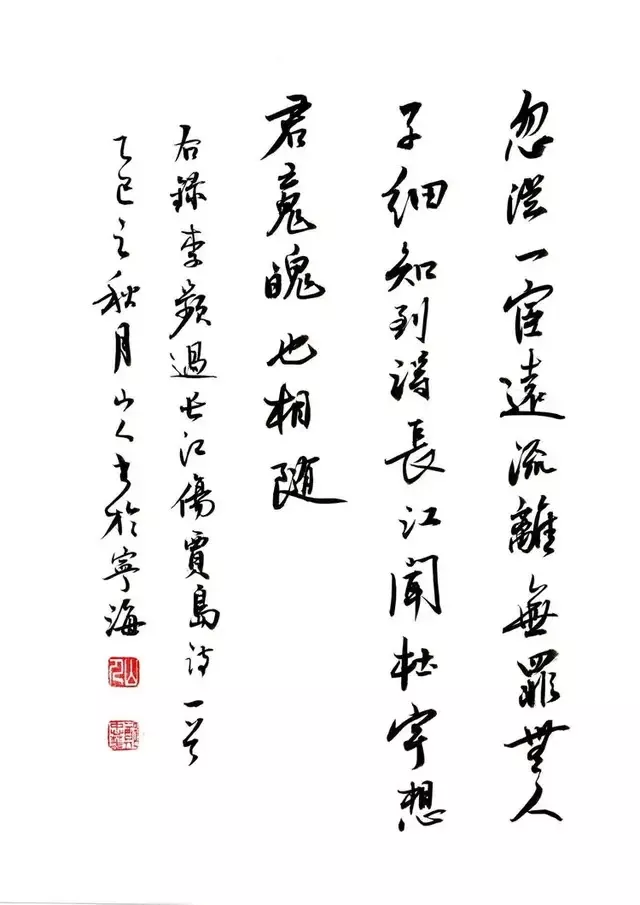 忽從一宦遠流離無罪無人
子細知到得長江聞杜宇想
君魂魄也相随
右録李頻過长江傷賈島詩一首
乙巳之秋月山人书於寧海